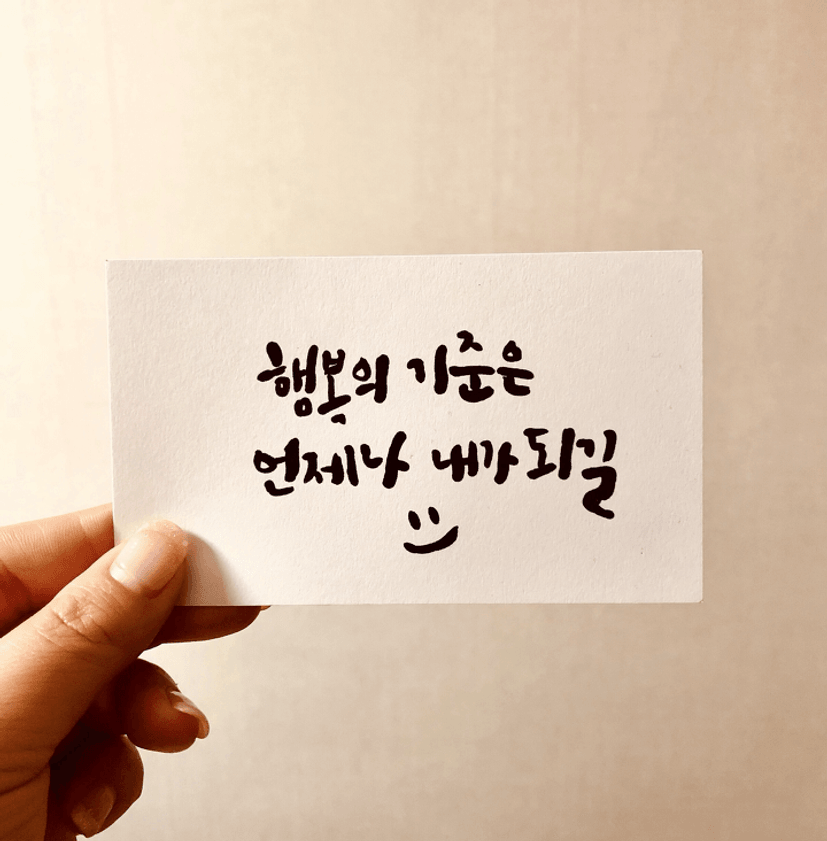 행복의 기준은
언제나 내가 되길